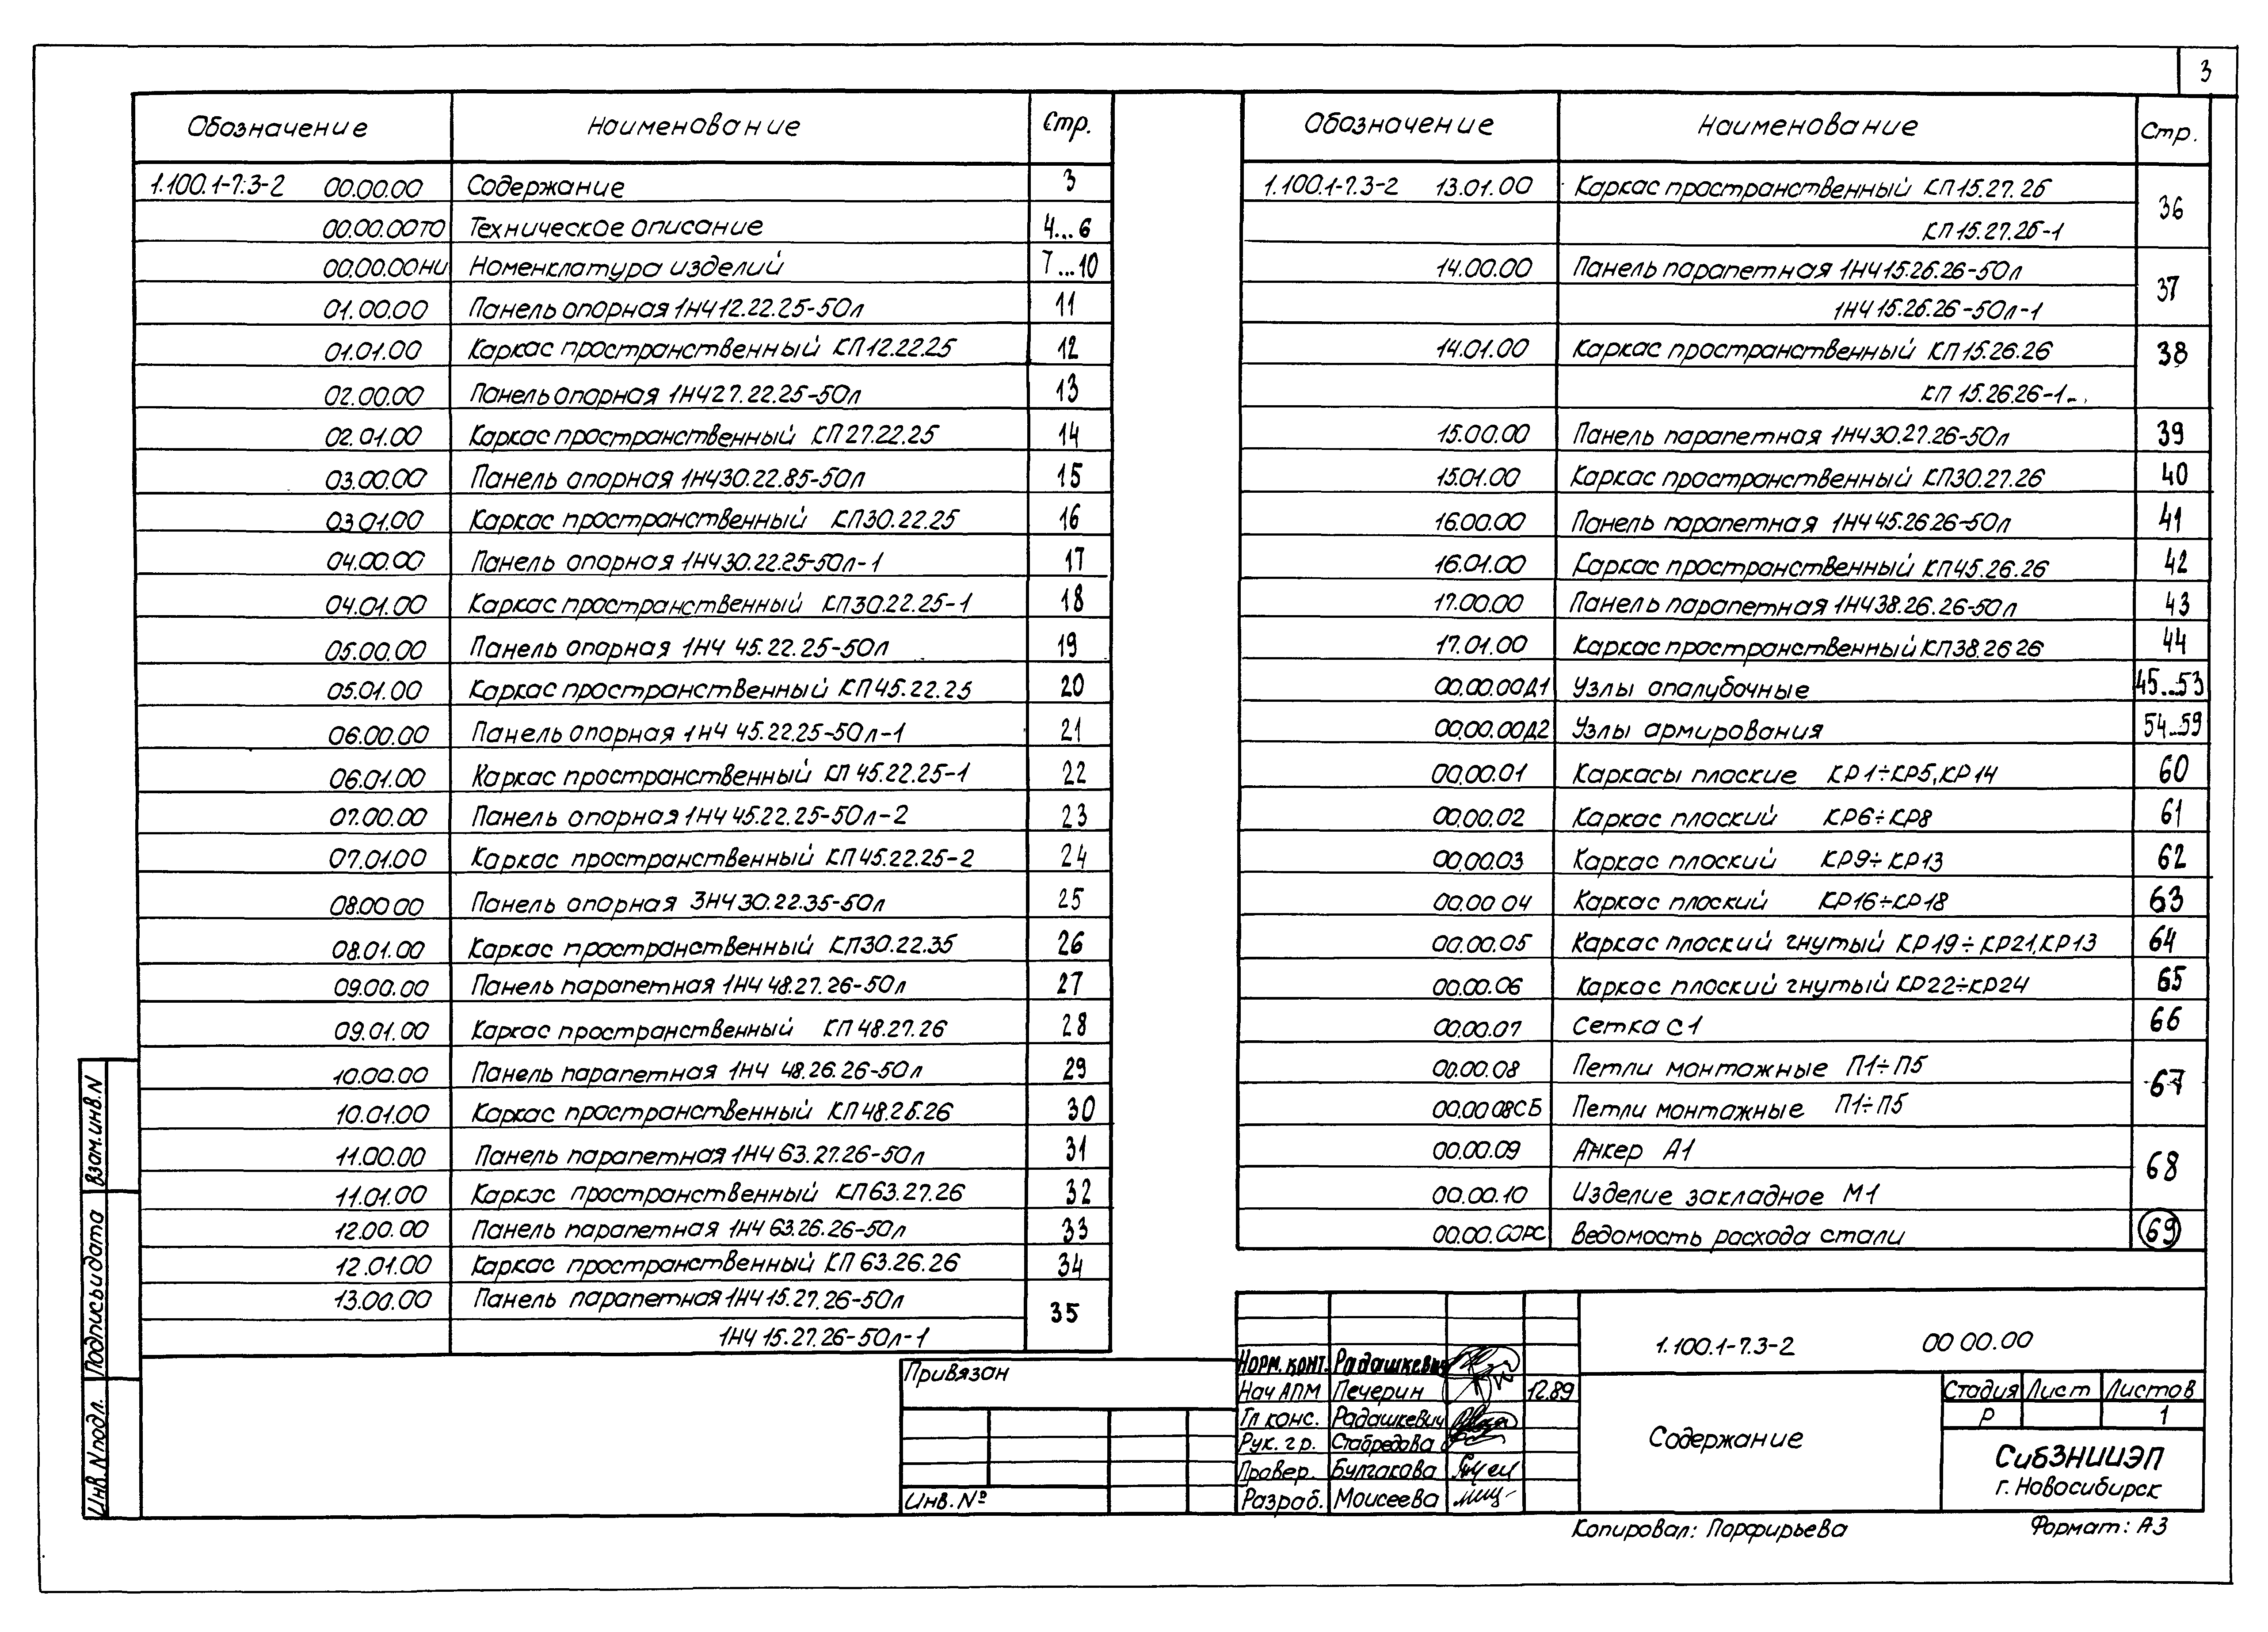 3
Обозначение Наименование Стр.
1.100.1-7.3-2 00.00.00 Содержание 3
00.00.00ТО Техническое описание 4...6
00.00.00НИ Номенклатура изделий 7...10
01.00.00 Панель опорная 1НЧ12.22.25-50л 11
01.01.00 Каркас пространственный КП12.22.25 12
02.00.00 Панель опорная 1НЧ27.22.25-50л 13
02.01.00 Каркас пространственный КП27.22.25 14
03.00.00 Панель опорная 1НЧ30.22.85-50л 15
03.01.00 Каркас пространственный КП30.22.25 16
04.00.00 Панель опорная 1НЧ30.22.25-50л-1 17
04.01.00 Каркас пространственный КП30.22.25-1 18
05.00.00 Панель опорная 1НЧ 45.22.25-50л 19
05.01.00 Каркас пространственный КП45.22.25 20
06.00.00 Панель опорная 1НЧ 45.22.25-50л-1 21
06.01.00 Каркас пространственный КП 45.22.25-1 22
07.00.00 Панель опорная 1НЧ 45.22.25-50л-2 23
07.01.00 Каркас пространственный КП45.22.25-2 24
08.00 00 Панель опорная 3НЧ30.22.35-50л 25
08.01.00 Каркас пространственный КП30.22.35 26
09.00.00 Панель парапетная 1НЧ 48.27.26-50л 27
09.01.00 Каркас пространственный КП 48.27.26 28
10.00.00 Панель парапетная 1НЧ 48.26.26-50л 29
10.01.00 Каркас пространственный КП48.26.26 30
11.00.00 Панель парапетная 1НЧ 63.27.26-50л 31
11.01.00 Каркас пространственный КП63.27.26 32
12.00.00 Панель парапетная 1НЧ 63.26.26-50л 33
12.01.00 Каркас пространственный КП 63.26.26 34
13.00.00 Панель парапетная 1НЧ 15.27.26-50л 35
1НЧ 15.27.26-50л-1
Обозначение Наименование Стр.
1.100.1-7.3-2 13.01.00 Каркас пространственный КП15.27.26 36
КП15.27.26-1
14.00.00 Панель парапетная 1НЧ15.26.26-50л 37
1НЧ15.26.26-50л-1
14.01.00 Каркас пространственный КП15.26.26 38
КП 15.26.26-1
15.00.00 Панель парапетная 1НЧ30.27.26-50л 39
15.01.00 Каркас пространственный КП30.27.26 40
16.00.00 Панель парапетная 1НЧ45.26.26-50л 41
16.01.00 Каркас пространственный КП45.26.26 42
17.00.00 Панель парапетная 1НЧ38.26.26-50л 43
17.01.00 Каркас пространственный КП38.26 26 44
00.00.00Д1 Узлы опалубочные 45...53
00.00.00Д2 Узлы армирования 54...59
00.00.01 Каркасы плоские КР1÷КР5,КР14 60
00.00.02 Каркас плоский КР6÷КР8 61
00.00.03 Каркас плоский КР9÷КР13 62
00.00 04 Каркас плоский КР16÷КР18 63
00.00.05 Каркас плоский гнутый КР19÷КР21,КР13 64
00.00.06 Каркас плоский гнутый КР22÷КР24 65
00.00.07 Сетка С1 66
00.00.08 Петли монтажные П1÷П5 67
00.00 08СБ Петли монтажные П1÷П5
00.00.09 Анкер А1 68
00.00.10 Изделие закладное М1
00.00.00РС Ведомость расхода стали 69
Взам.инв.N
Подпись и дата
Инв.N подл.
Привязан
Инв. №
Норм.конт. Радашкевич
Нач АПМ Печерин 12.89
Гл конс. Радашкевич
Рук. гр. Стабредова
Провер. Булгакова
Разраб. Моисеева
1.100.1-7.3-2 00 00.00
Содержание
Стадия Лист Листов
Р 1
СибЗНИИЭП
г. Новосибирск
Копировал: Порфирьева Формат: А3